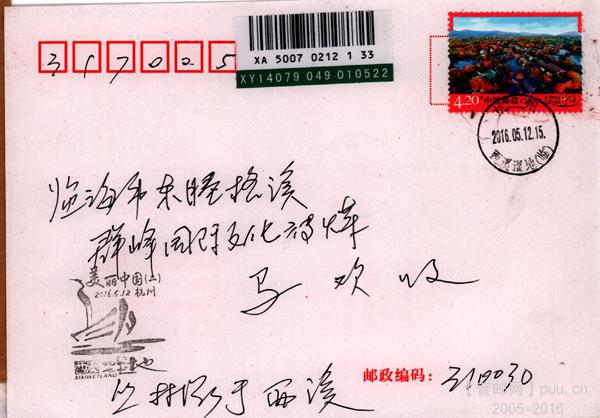 317025
XA 5007 0212 1 33
XY14079 049 010522
4.20 中国邮政
2016.05.12.15.
西溪湿地(临)
临海市东塍格溪
群峰国际文化传媒
马欢收
美丽中国(二)
2016.5.12 杭州
XIXIWETLAND
邮政编码：310030
于西溪
[晋邮网] puu.cn
2005-2016